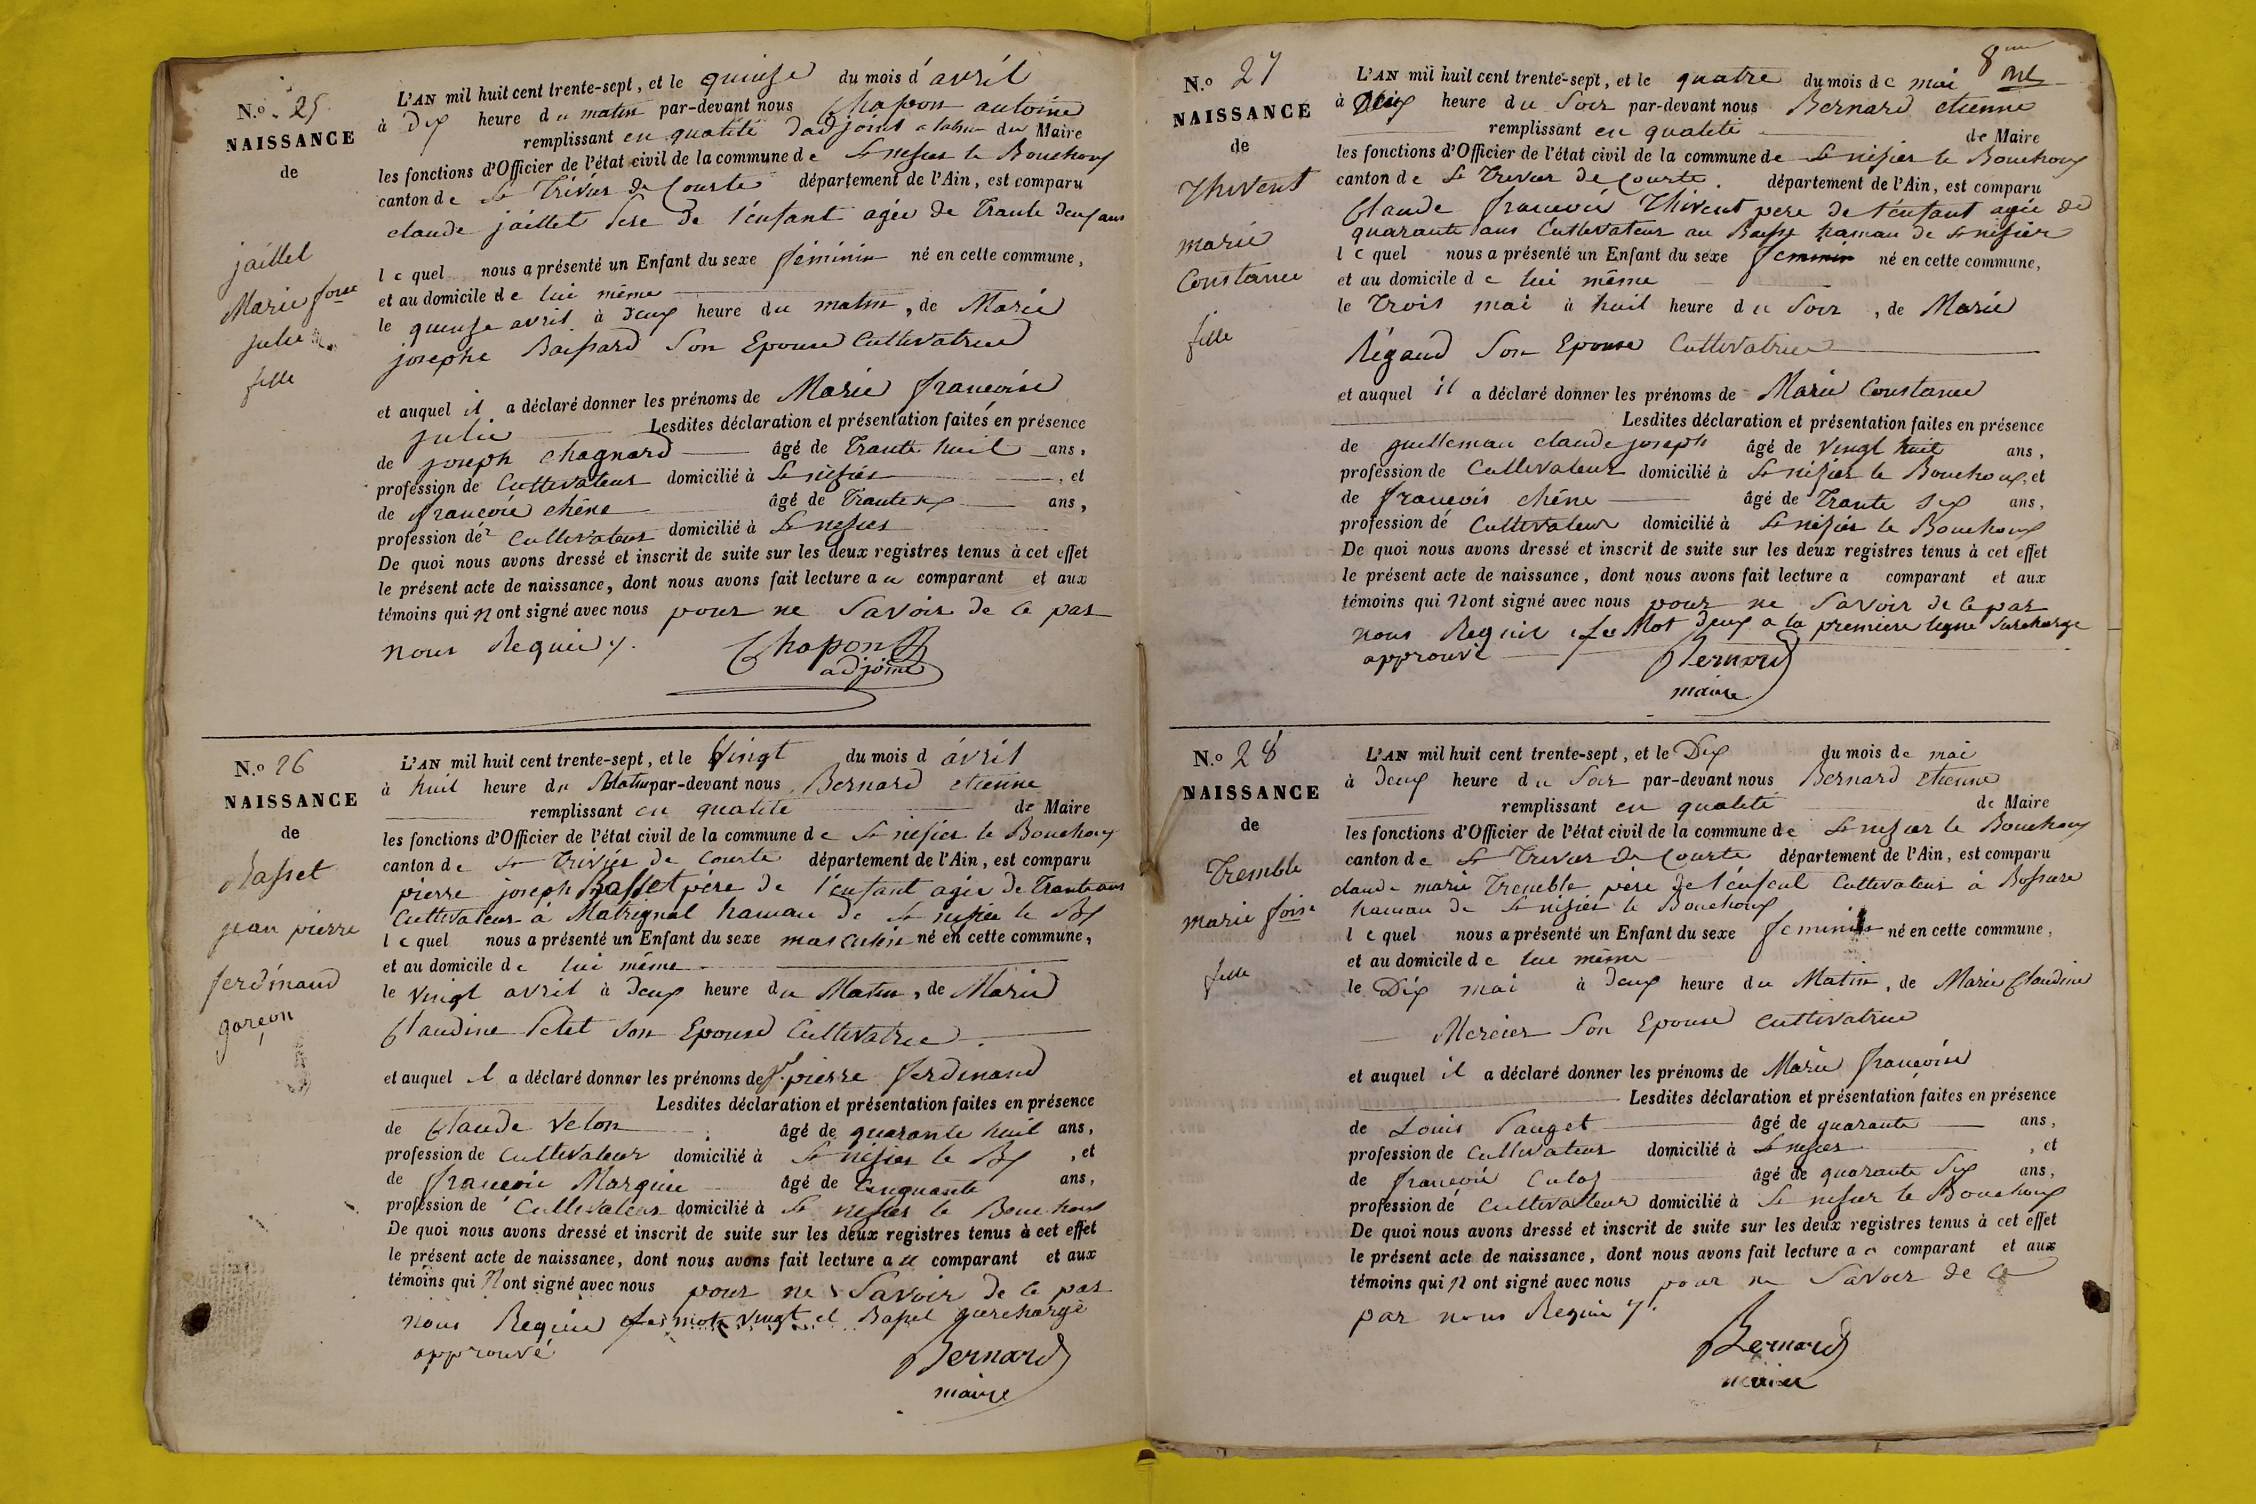 N.º 25
NAISSANCE
de
jaillet
Marie foise
julie
fille
L'AN mil huit cent trente-sept, et le quinse du mois d'avril
à Dix heure du matin par-devant nous Chapon antoine
remplissant en qualité dadjoint du Maire
les fonctions d'Officier de l'état civil de la commune de St nisier le Bouchoux
canton de St Trivier de Courte département de l'Ain, est comparu
claude jaillet Pere de l'enfant agée de Trante deux ans
lequel nous a présenté un Enfant du sexe féminin né en cette commune,
et au domicile de lui même
le quinse avril à deux heure du matin, de Marie
josephe Baissard Son Epouse Cultivatrice
et auquel il a déclaré donner les prénoms de Marie francoise
julie Lesdites déclaration et présentation faites en présence
de joseph Chagnard âgé de Trante huit ans,
profession de Cultivateur domicilié à St nisier, et
de francois chêne âgé de Trante six ans,
profession de Cultivateur domicilié à St nisier
De quoi nous avons dressé et inscrit de suite sur les deux registres tenus à cet effet
le présent acte de naissance, dont nous avons fait lecture au comparant et aux
témoins qui n ont signé avec nous pour ne Savoir de ce par
nous Requis.
Chapon
adjoint
N.º 26
NAISSANCE
de
Basset
jean pierre
ferdinand
garçon
L'AN mil huit cent trente-sept, et le Vingt du mois d avril
à huit heure du Matin par-devant nous Bernard etienne
remplissant en qualité de Maire
les fonctions d'Officier de l'état civil de la commune de St nisier le Bouchoux
canton de St Trivier de Courte département de l'Ain, est comparu
pierre joseph Basset père de l'enfant agée de Trante ans
Cultivateur à Matrignat hamau de St nisier le Bx
lequel nous a présenté un Enfant du sexe masculin né en cette commune,
et au domicile de lui même
le vingt avril à deux heure du Matin, de Marie
Claudine Petet son Epouse Cultivatrice
et auquel il a déclaré donner les prénoms de J. pierre ferdinand
Lesdites déclaration et présentation faites en présence
de Claude Velon âgé de quarante huit ans,
profession de Cultivateur domicilié à St nisier le Bx, et
de francois Marguin âgé de Cinquante ans,
profession de Cultivateur domicilié à St nisier le Bouchoux
De quoi nous avons dressé et inscrit de suite sur les deux registres tenus à cet effet
le présent acte de naissance, dont nous avons fait lecture au comparant et aux
témoins qui n'ont signé avec nous pour ne Savoir de ce par
nous Requis les mots vingt et Basset surchargé
approuvé
Bernard
maire
8me
N.º 27
NAISSANCE
de
Thivent
marie
Constance
fille
L'AN mil huit cent trente-sept, et le quatre du mois de mai
à deux heure du Soir par-devant nous Bernard etienne
remplissant en qualité de Maire
les fonctions d'Officier de l'état civil de la commune de St nisier le Bouchoux
canton de St Trivier de Courte. département de l'Ain, est comparu
Claude francois Thivent pere de l'enfant agée de
quarante ans Cultivateur au hamau de St nisier
lequel nous a présenté un Enfant du sexe feminin né en cette commune,
et au domicile de lui même
le Trois mai à huit heure du Soir, de Marie
Régaud Son Epouse Cultivatrice
et auquel il a déclaré donner les prénoms de Marie Constance
Lesdites déclaration et présentation faites en présence
de guilleman claude joseph âgé de vingt huit ans,
profession de Cultivateur domicilié à St nisier le Bouchoux, et
de francois chêne âgé de Trante six ans,
profession de Cultivateur domicilié à St nisier le Bouchoux
De quoi nous avons dressé et inscrit de suite sur les deux registres tenus à cet effet
le présent acte de naissance, dont nous avons fait lecture a comparant et aux
témoins qui n ont signé avec nous pour ne Savoir de ce par
nous Requis Le Mot deux a la premiere ligne Surcharge
approuvé
Bernard
maire
N.º 28
NAISSANCE
de
Tremble
marie foise
fille
L'AN mil huit cent trente-sept, et le Dix du mois de mai
à deux heure du Soir par-devant nous Bernard etienne
remplissant en qualité de Maire
les fonctions d'Officier de l'état civil de la commune de St nisier le Bouchoux
canton de St Trivier de Courte département de l'Ain, est comparu
claude marie Tremble père de l'enfant Cultivateur à
hamau de St nisier le Bouchoux
lequel nous a présenté un Enfant du sexe feminin né en cette commune,
et au domicile de lui même
le Dix mai à deux heure du Matin, de Marie Claudine
Mercier Son Epouse Cultivatrice
et auquel il a déclaré donner les prénoms de Marie francoise
Lesdites déclaration et présentation faites en présence
de Louis Pauget âgé de quarante ans,
profession de Cultivateur domicilié à St nisier, et
de francois Culas âgé de quarante six ans,
profession de Cultivateur domicilié à St nisier le Bouchoux
De quoi nous avons dressé et inscrit de suite sur les deux registres tenus à cet effet
le présent acte de naissance, dont nous avons fait lecture a comparant et aux
témoins qui n ont signé avec nous pour ne Savoir de ce
par nous Requis.
Bernard
maire